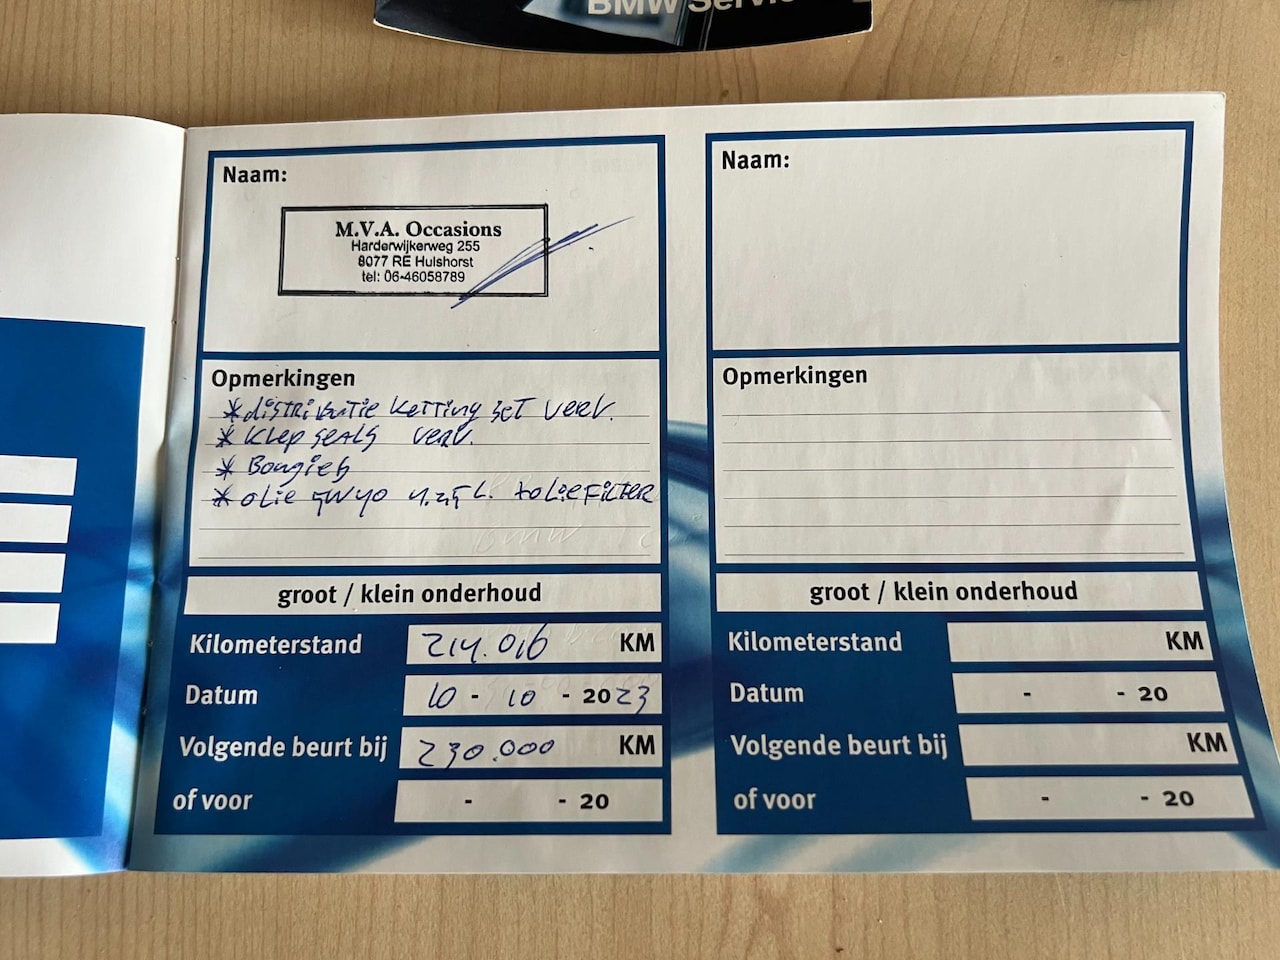 BMW Servi
Naam:
M.V.A. Occasions
Harderwijkerweg 255
8077 RE Hulshorst
tel: 06-46058789
Opmerkingen
* distributie ketting set verv.
* klep seals verv.
* Bougies
* olie 5W40 4.25 L. +oliefilter
groot / klein onderhoud
Kilometerstand 214.016 KM
Datum 10 - 10 - 2023
Volgende beurt bij 230.000 KM
of voor - - 20
Naam:
Opmerkingen
groot / klein onderhoud
Kilometerstand KM
Datum - - 20
Volgende beurt bij KM
of voor - - 20